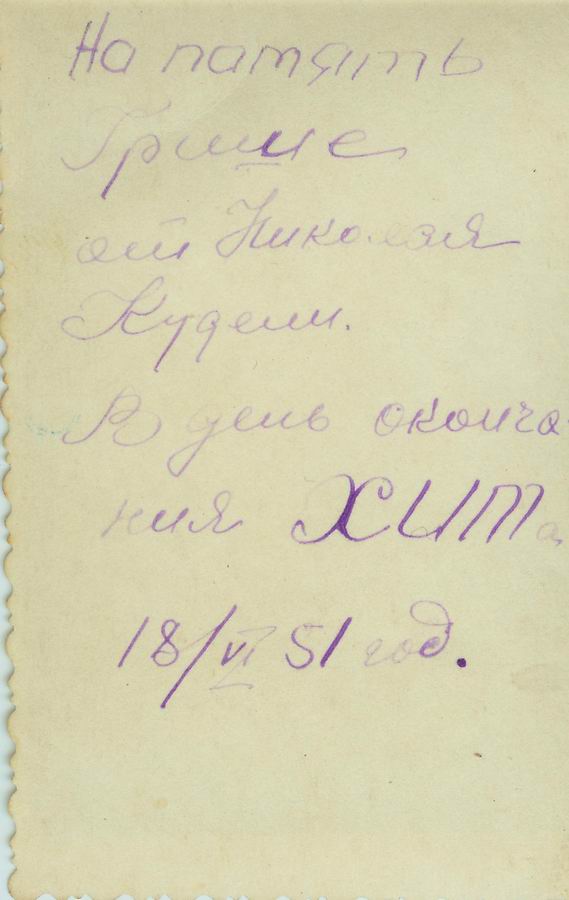 На память
Грише
от Николая
Кудели.
В день оконча-
ния ХИМа
18/VI 51 год.